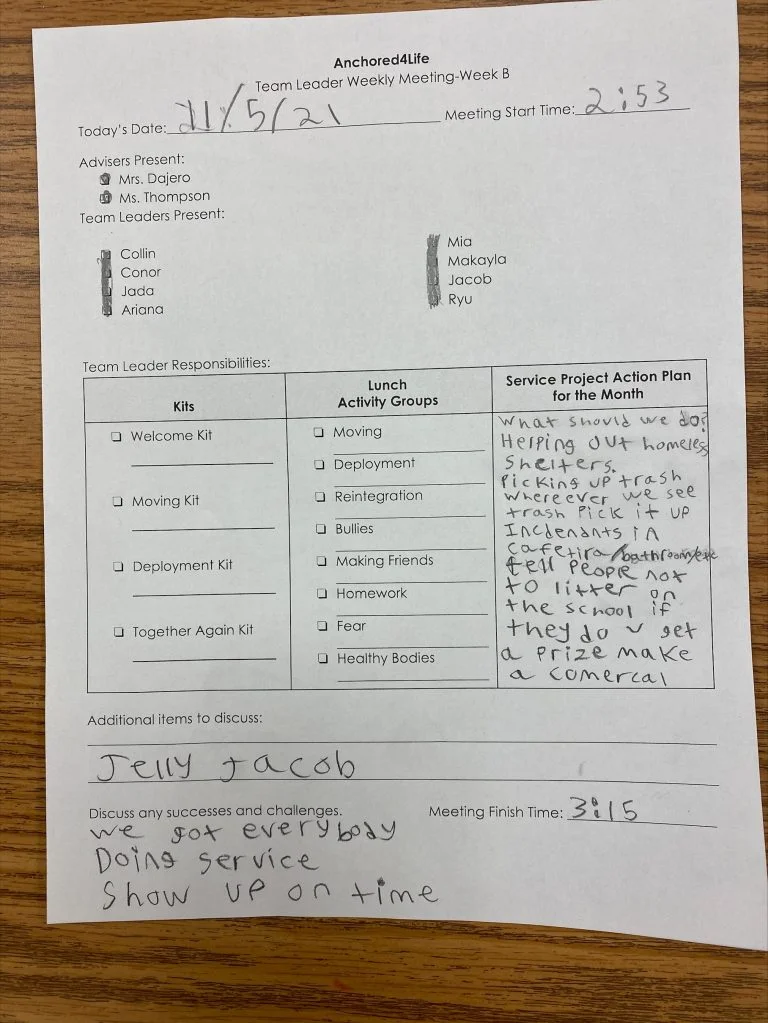 Anchored4Life
Team Leader Weekly Meeting-Week B
Today's Date: 11/5/21 Meeting Start Time: 2:53
Advisers Present:
Mrs. Dajero
Ms. Thompson
Team Leaders Present:
Collin
Conor
Jada
Ariana
Mia
Makayla
Jacob
Ryu
Team Leader Responsibilities:
Kits
Welcome Kit
Moving Kit
Deployment Kit
Together Again Kit
Lunch
Activity Groups
Moving
Deployment
Reintegration
Bullies
Making Friends
Homework
Fear
Healthy Bodies
Service Project Action Plan
for the Month
What should we do?
Helping out homeless
Shelters.
Picking up trash
whereever we see
trash Pick it up
Incidenants in
cafetira/bathroom/etc
tell people not
to litter on
the school if
they do u get
a prize make
a comercal
Additional items to discuss:
Jelly Jacob
Discuss any successes and challenges. Meeting Finish Time: 3:15
we got everybody
Doing service
Show up on time